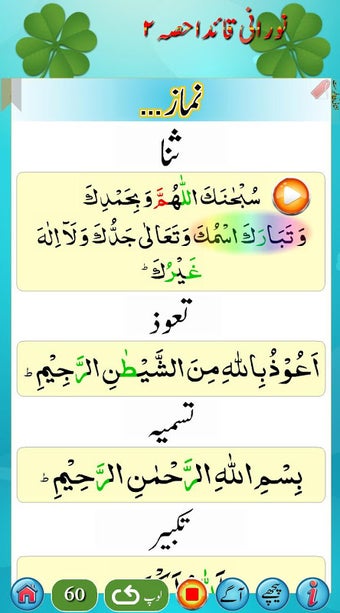 نورانی قائدا حصہ ۲
نماز...
ثنا
سُبْحٰنَكَ اللّٰهُمَّ وَ بِحَمْدِكَ
وَ تَبَارَكَ اسْمُكَ وَ تَعَالٰى جَدُّكَ وَ لَآ اِلٰهَ
غَيْرُكَ ؕ
تعوذ
اَعُوْذُ بِاللّٰهِ مِنَ الشَّيْطٰنِ الرَّجِيْمِ ؕ
تسمیہ
بِسْمِ اللّٰهِ الرَّحْمٰنِ الرَّحِيْمِ ؕ
تکبیر
پیچھے
آگے
لوپ
60